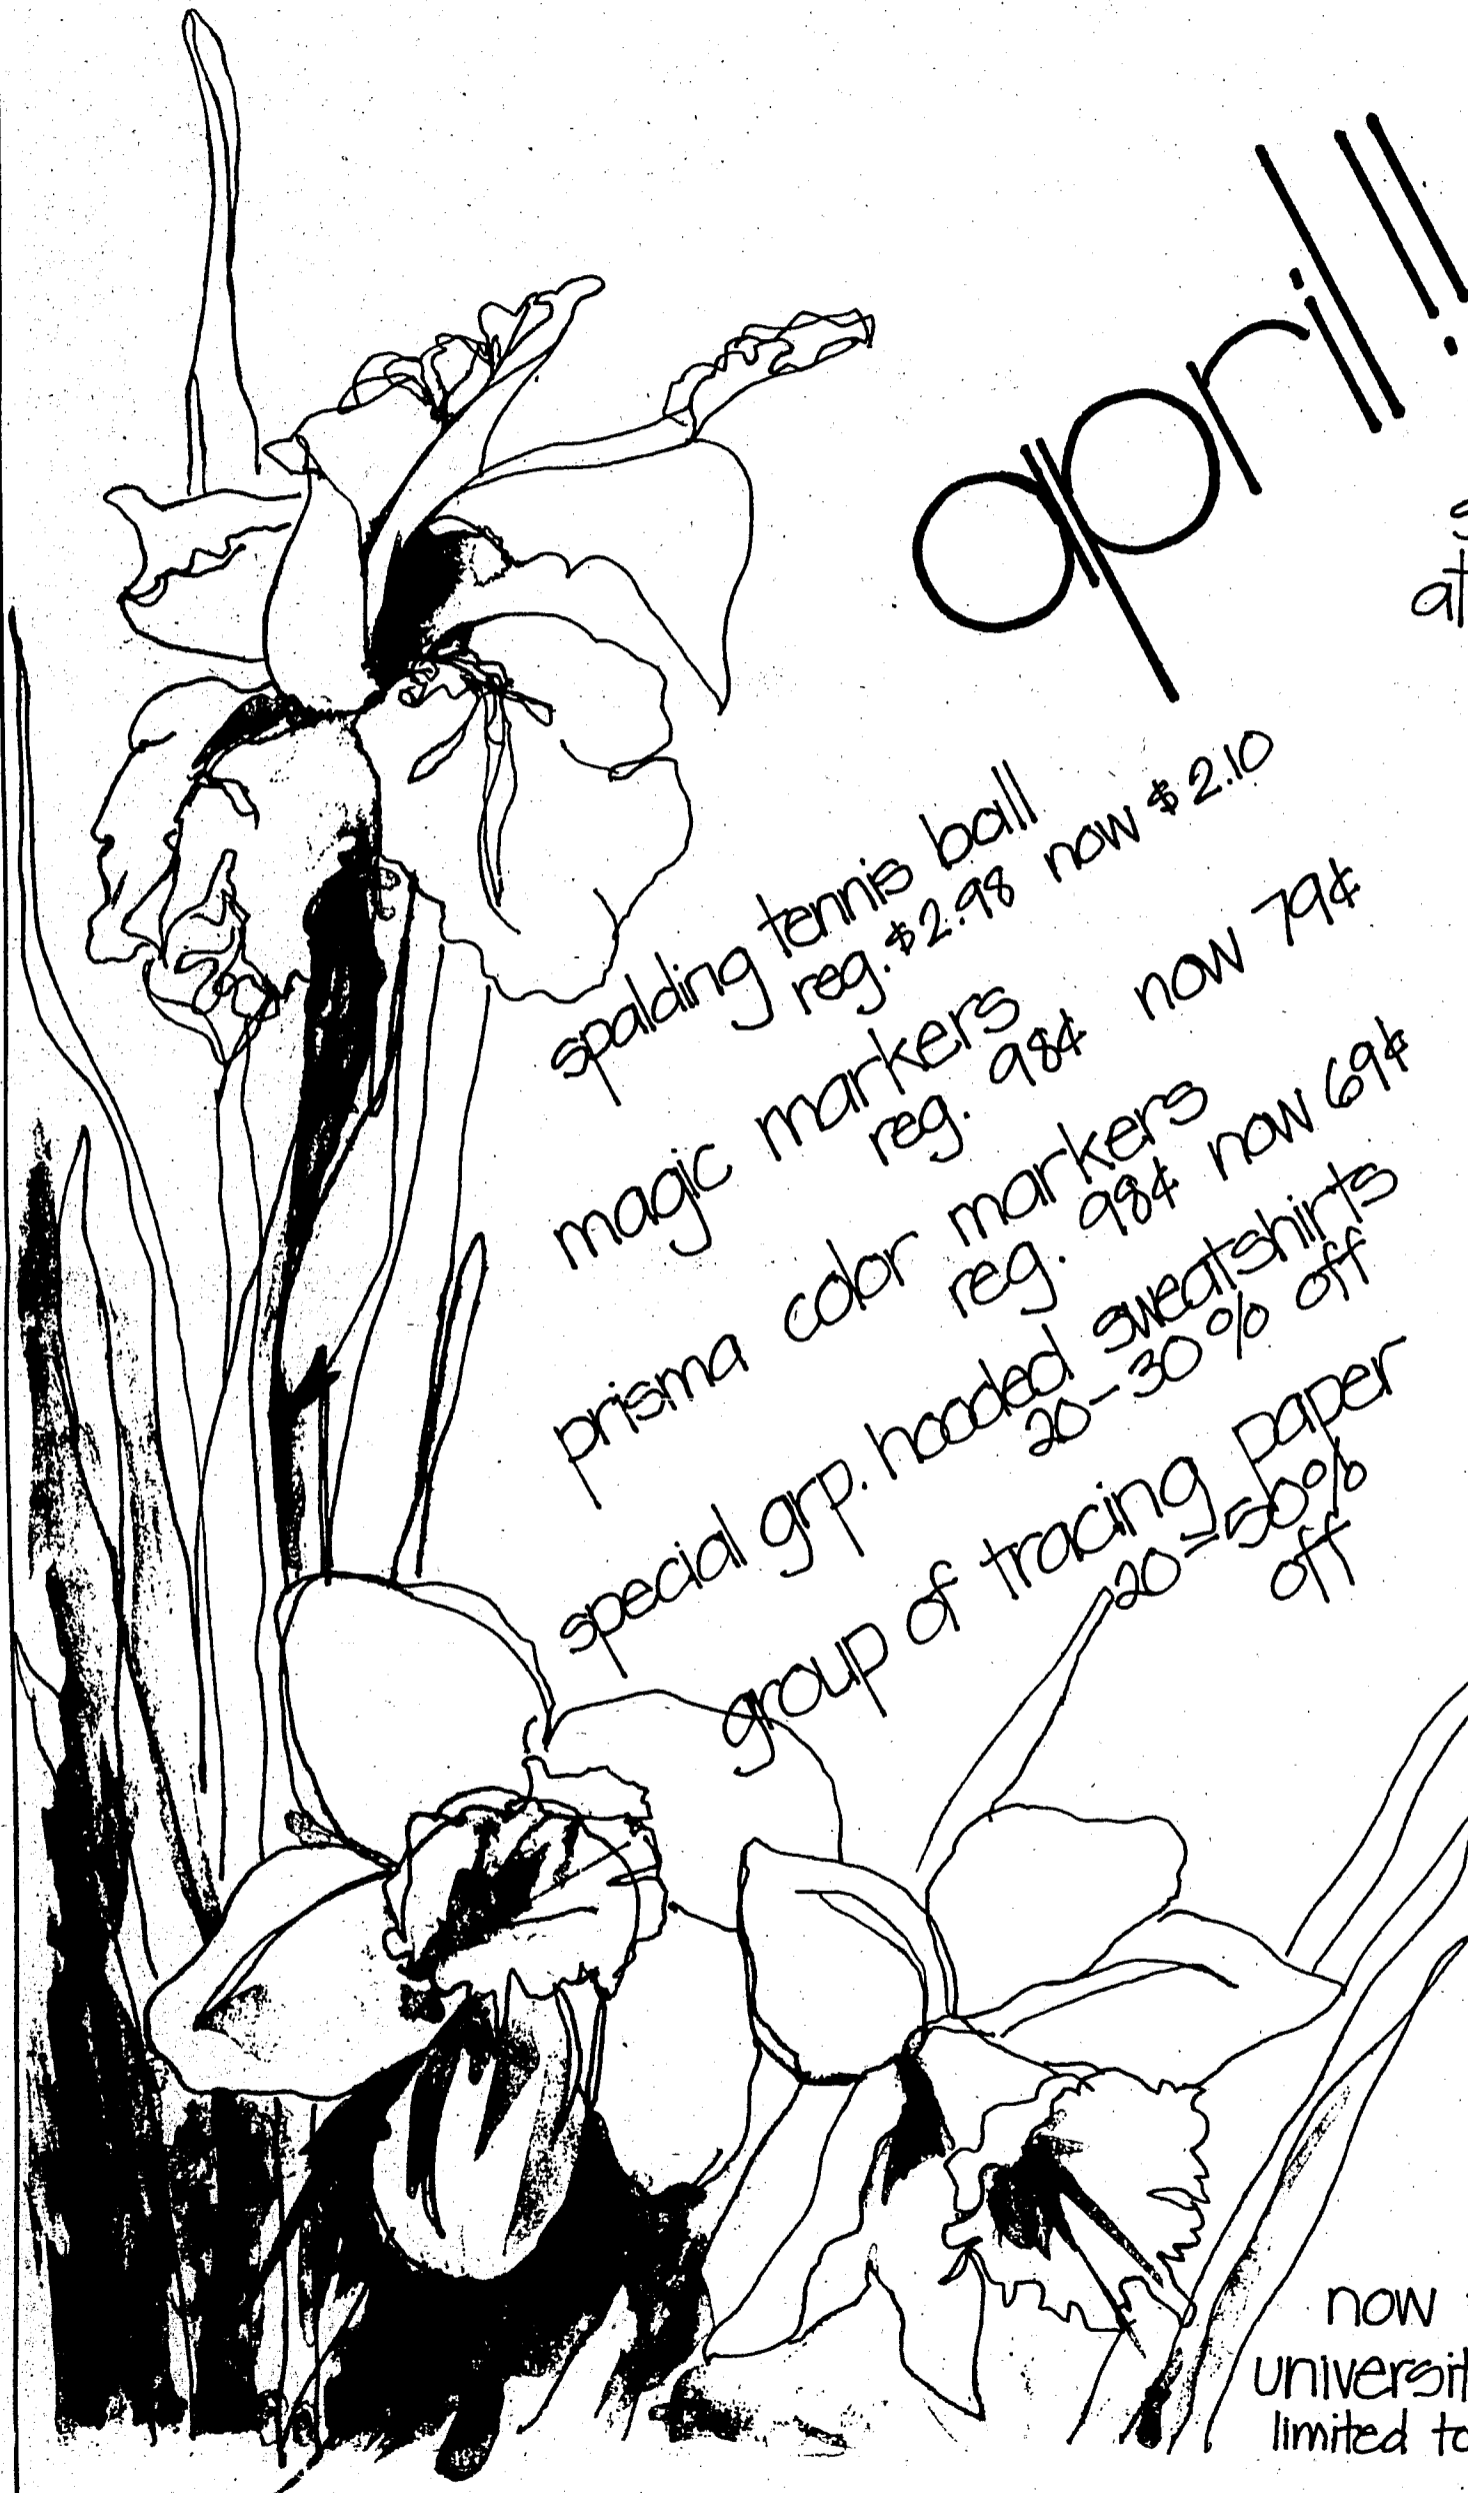 april!!
at
spalding tennis ball
reg. $2.98 now $2.10
magic markers
reg. 98¢ now 79¢
prisma color markers
reg. 98¢ now 69¢
special grp. hooded sweatshirts
20-30% off
group of tracing paper
20-50%
off
now
limited